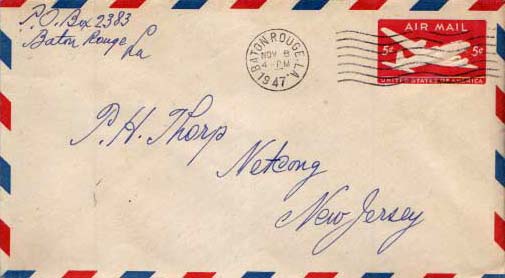 P.O. Box 2383
Baton Rouge
La
BATON ROUGE, LA.
NOV 8
4 - PM
1947
AIR MAIL
5¢ 5¢
UNITED STATES OF AMERICA
P. H. Thorp
Netcong
New Jersey